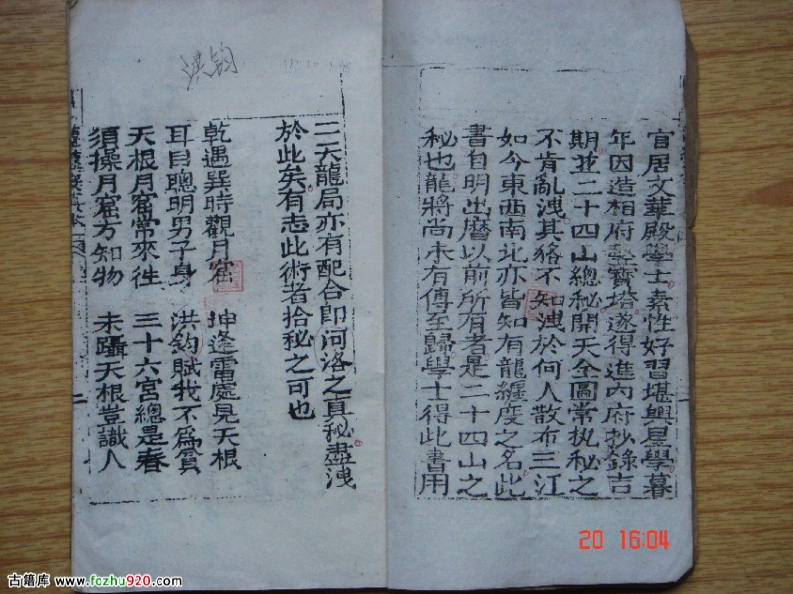 官居文華殿學士素性好習堪輿星學暮
年因造相府監寶塔遂得進內府抄錄吉
期並二十四山總秘開天全圖常执秘之
不肯亂洩其貉不知洩於何人散布三江
如今東西南北亦皆知有龍纏度之名此
書自明出曆以前所有者是二十四山之
秘也龍將尚未有傳至歸學士得此書用
二天龍局亦有配合即河洛之真秘盡洩
於此矣有志此術者拾秘之可也
乾遇巽時觀月窟 坤逢雷處見天根
耳目聰明男子身 洪鈞賦我不為貧
天根月窟常來往 三十六宮總是春
須探月窟方知物 未躡天根豈識人
洪鈞
二
20 16:04
古籍库 www.fczhu920.com